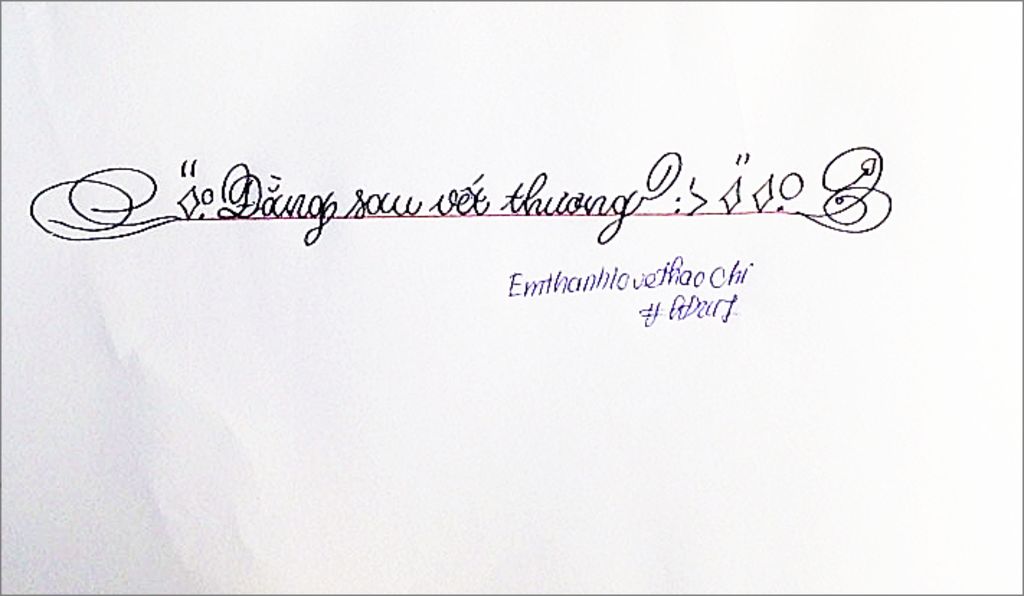 "Đằng sau vết thương? :> "
EmthanhlovethaoChi